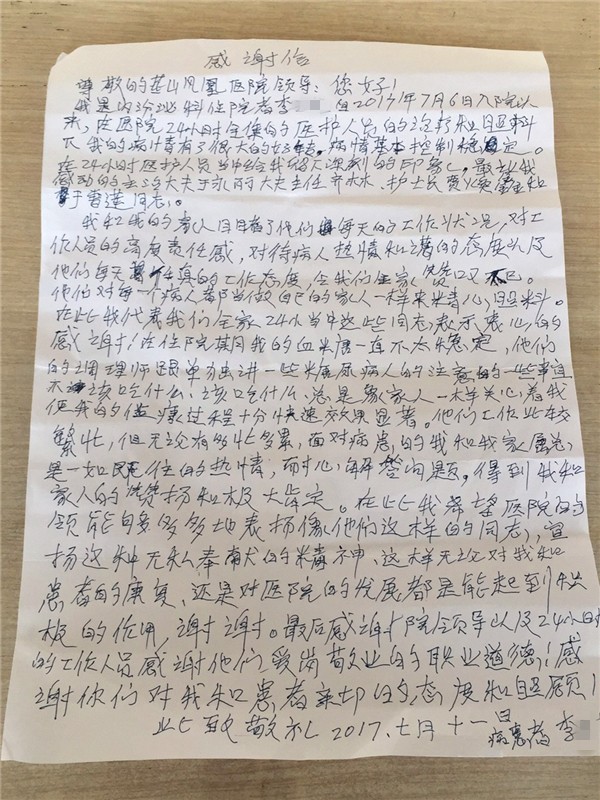 感谢信
尊敬的燕山凤凰医院领导：您好！
我是内分泌科住院患者李 自2017年7月6日入院以
来，在医院24小时全体的医护人员的治疗和照料
下 我的病情有了很大的好转，病情基本控制稳定。
在24小时医护人员当中给我留下深刻的印象，最让我
感动的是 大夫 的大夫主任 护士长贾 和
于 莲同志。
我和我的家人目睹了他们每天的工作状况，对工
作人员的高负责任感，对待病人热情和谐的态度以及
他们每天认真的工作态度，令我们全家赞口不已。
他们对每一个病人都当做自己的家人一样来精心照料。
在此我代表我们全家24小当中这些同志，表示衷心的
感谢！在住院其间我的血糖一直不太稳定，他们
的调理师跟单独讲一些糖尿病人的注意的一些事宜
不该吃什么、该吃什么，总是象家人一样关心着我
使我的健康过程十分快速效果显著。他们工作非常
繁忙，但无论有多忙多累，面对病患的我和我家属总
是一如既往的热情，耐心，解答问题。得到我和
家人的赞扬和极大肯定。在此我希望医院的
领能够多多地表扬像他们这样的同志，宣
扬这种无私奉献的精神、这样无论对我和
患者的康复、还是对医院的发展都是能起到积
极的作用，谢谢。最后感谢院领导以及24小时
的工作人员感谢他们爱岗敬业的职业道德！感
谢你们对我和患者亲切的态度和照顾！
此致敬礼 2017、七月十一日
病患者 李